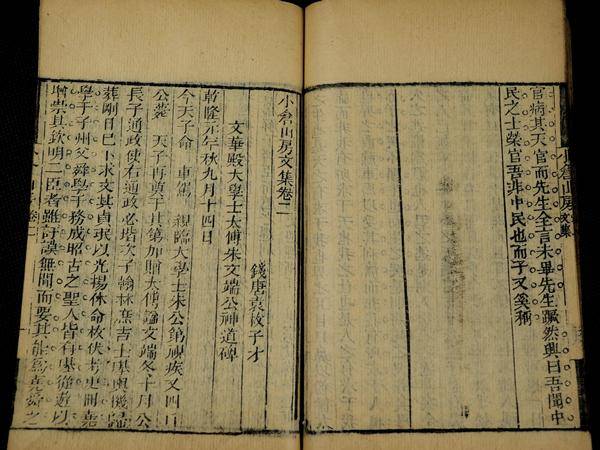 官病其天官而先生全言未畢先生蹶然興曰吾聞中
民之士榮官吾非中民也而子又奚稱
小倉山房文集
小倉山房文集卷二
錢唐袁枚子才
文華殿大學士太傅朱文端公神道碑
乾隆元年秋九月十四日
今天子命 車駕 親臨大學士朱公第視疾又四日
公薨 天子再奠于其第加贈太傅諡文端冬十月公
長子通政使右通政必堦次子翰林庶吉士基輿機歸
葬剛日已卜求文其貞珉以光揚休命枚伏考史
學于子州父舜學于務成昭古之聖人皆有從遊以
增崇其欽明二臣者雖訏謨無聞而要其能爲堯舜之